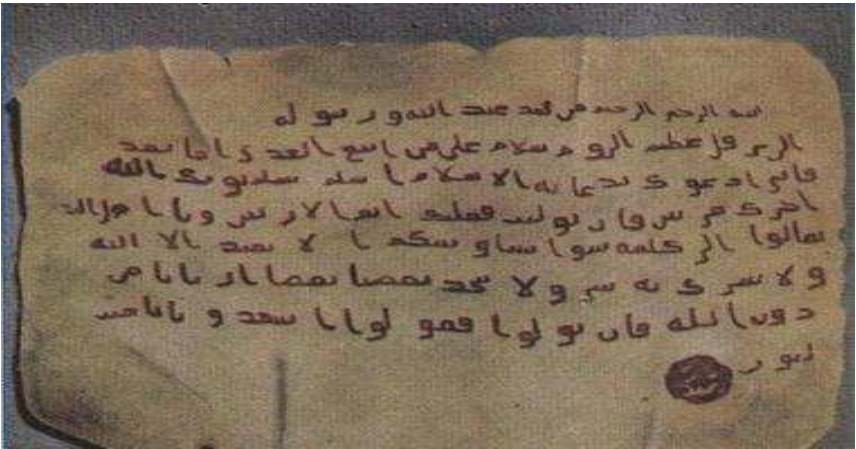 الله الرحمن الرحيم من محمد عبد الله و رسوله
الى هرقل عظيم الروم سلام على من اتبع الهدى اما بعد
فانى ادعوك بدعاية الاسلام اسلم تسلم يوتك الله
اجرك مرتين فان توليت فعليك اثم الاريسين ويا اهل
تعالوا الى كلمة سوا بيننا وبينكم ا لا نعبد الا الله
ولا نشرك به شي ولا يتخذ بعضنا بعضا اربابا من
دون الله فان تولوا فقولوا اشهدوا بانا مسـ
لمون